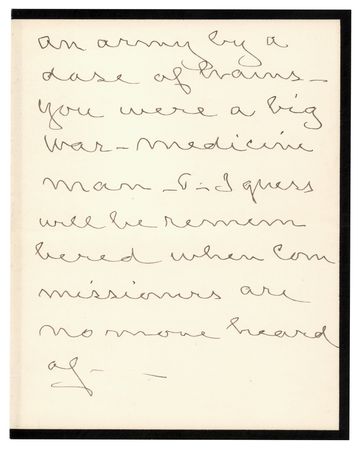 an army by a
dose of brains –
you were a big
war – medicine
man – & – I guess
will be remem
bered when Com
missioners are
no more heard
of – –